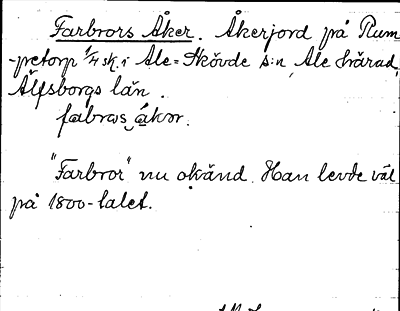 Farbrors Åker. Åkerjord på Rum
-pretorp 1/4 sk. i Ale-Skövde s:n, Ale härad,
Älfsborgs län.
fabros åkǝr.
"Farbror" nu okänd. Han levde väl
på 1800-talet.